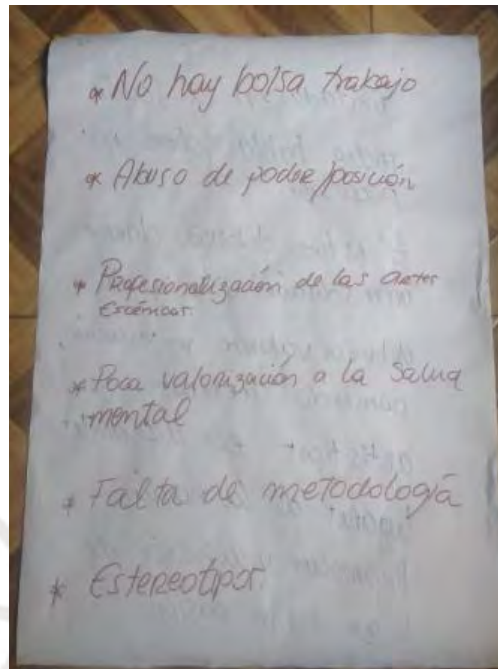 * No hay bolsa trabajo
* Abuso de poder/posición
* Profesionalización de las artes
Escénicas.
* Poca valorización a la Salud
mental
* Falta de metodología
* Estereotipos.